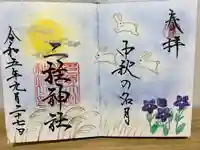 奉拝
中秋の名月
二柱神社
令和五年九月二十七日